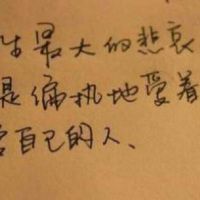 生最大的悲哀
是偏执地爱着
害自己的人、